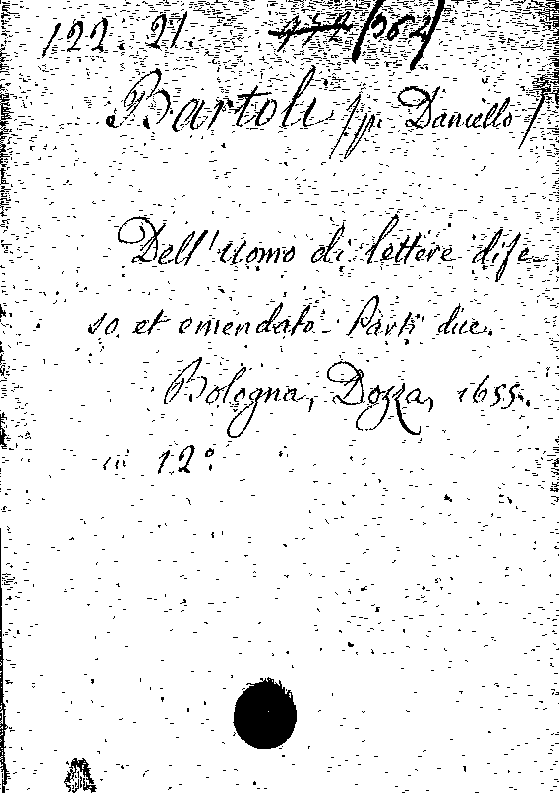 122. 21. /362/
Bartoli /p. Daniello/
Dell'uomo di lettere dife-
so et emendato. Parti due.
Bologna, Dozza, 1655.
in 12º